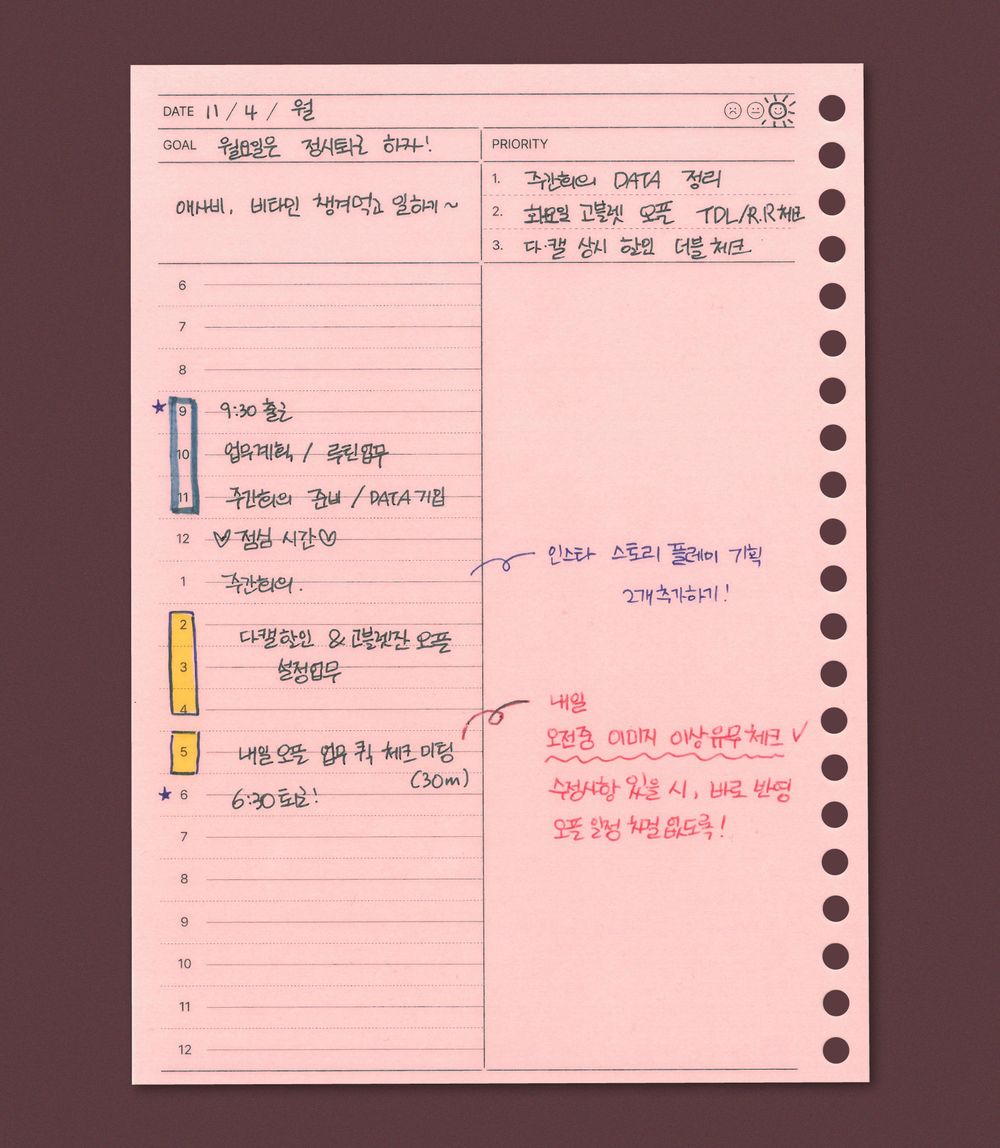 DATE 11 / 4 / 월
GOAL 월요일은 정시퇴근 하자!
애사비, 비타민 챙겨먹고 일하기~
PRIORITY
1. 주간회의 DATA 정리
2. 화요일 고블렛 오픈 TDL/R.R체크
3. 다·캘 상시 할인 더블체크
6
7
8
★ 9 9:30 출근
10 업무계획 / 루틴업무
11 주간회의 준비 / DATA 기입
12 ♡점심 시간♡
인스타 스토리 플레이 기획
2개 추가하기!
1 주간회의.
2 다캘할인 & 고블렛잔 오픈
3 설정업무
4
내일
오전중 이미지 이상유무체크 ✓
수정사항 있을 시, 바로 반영
오픈 일정 차질 없도록!
5 내일 오픈 업무 퀵 체크 미팅
(30m)
★ 6 6:30 퇴근!
7
8
9
10
11
12